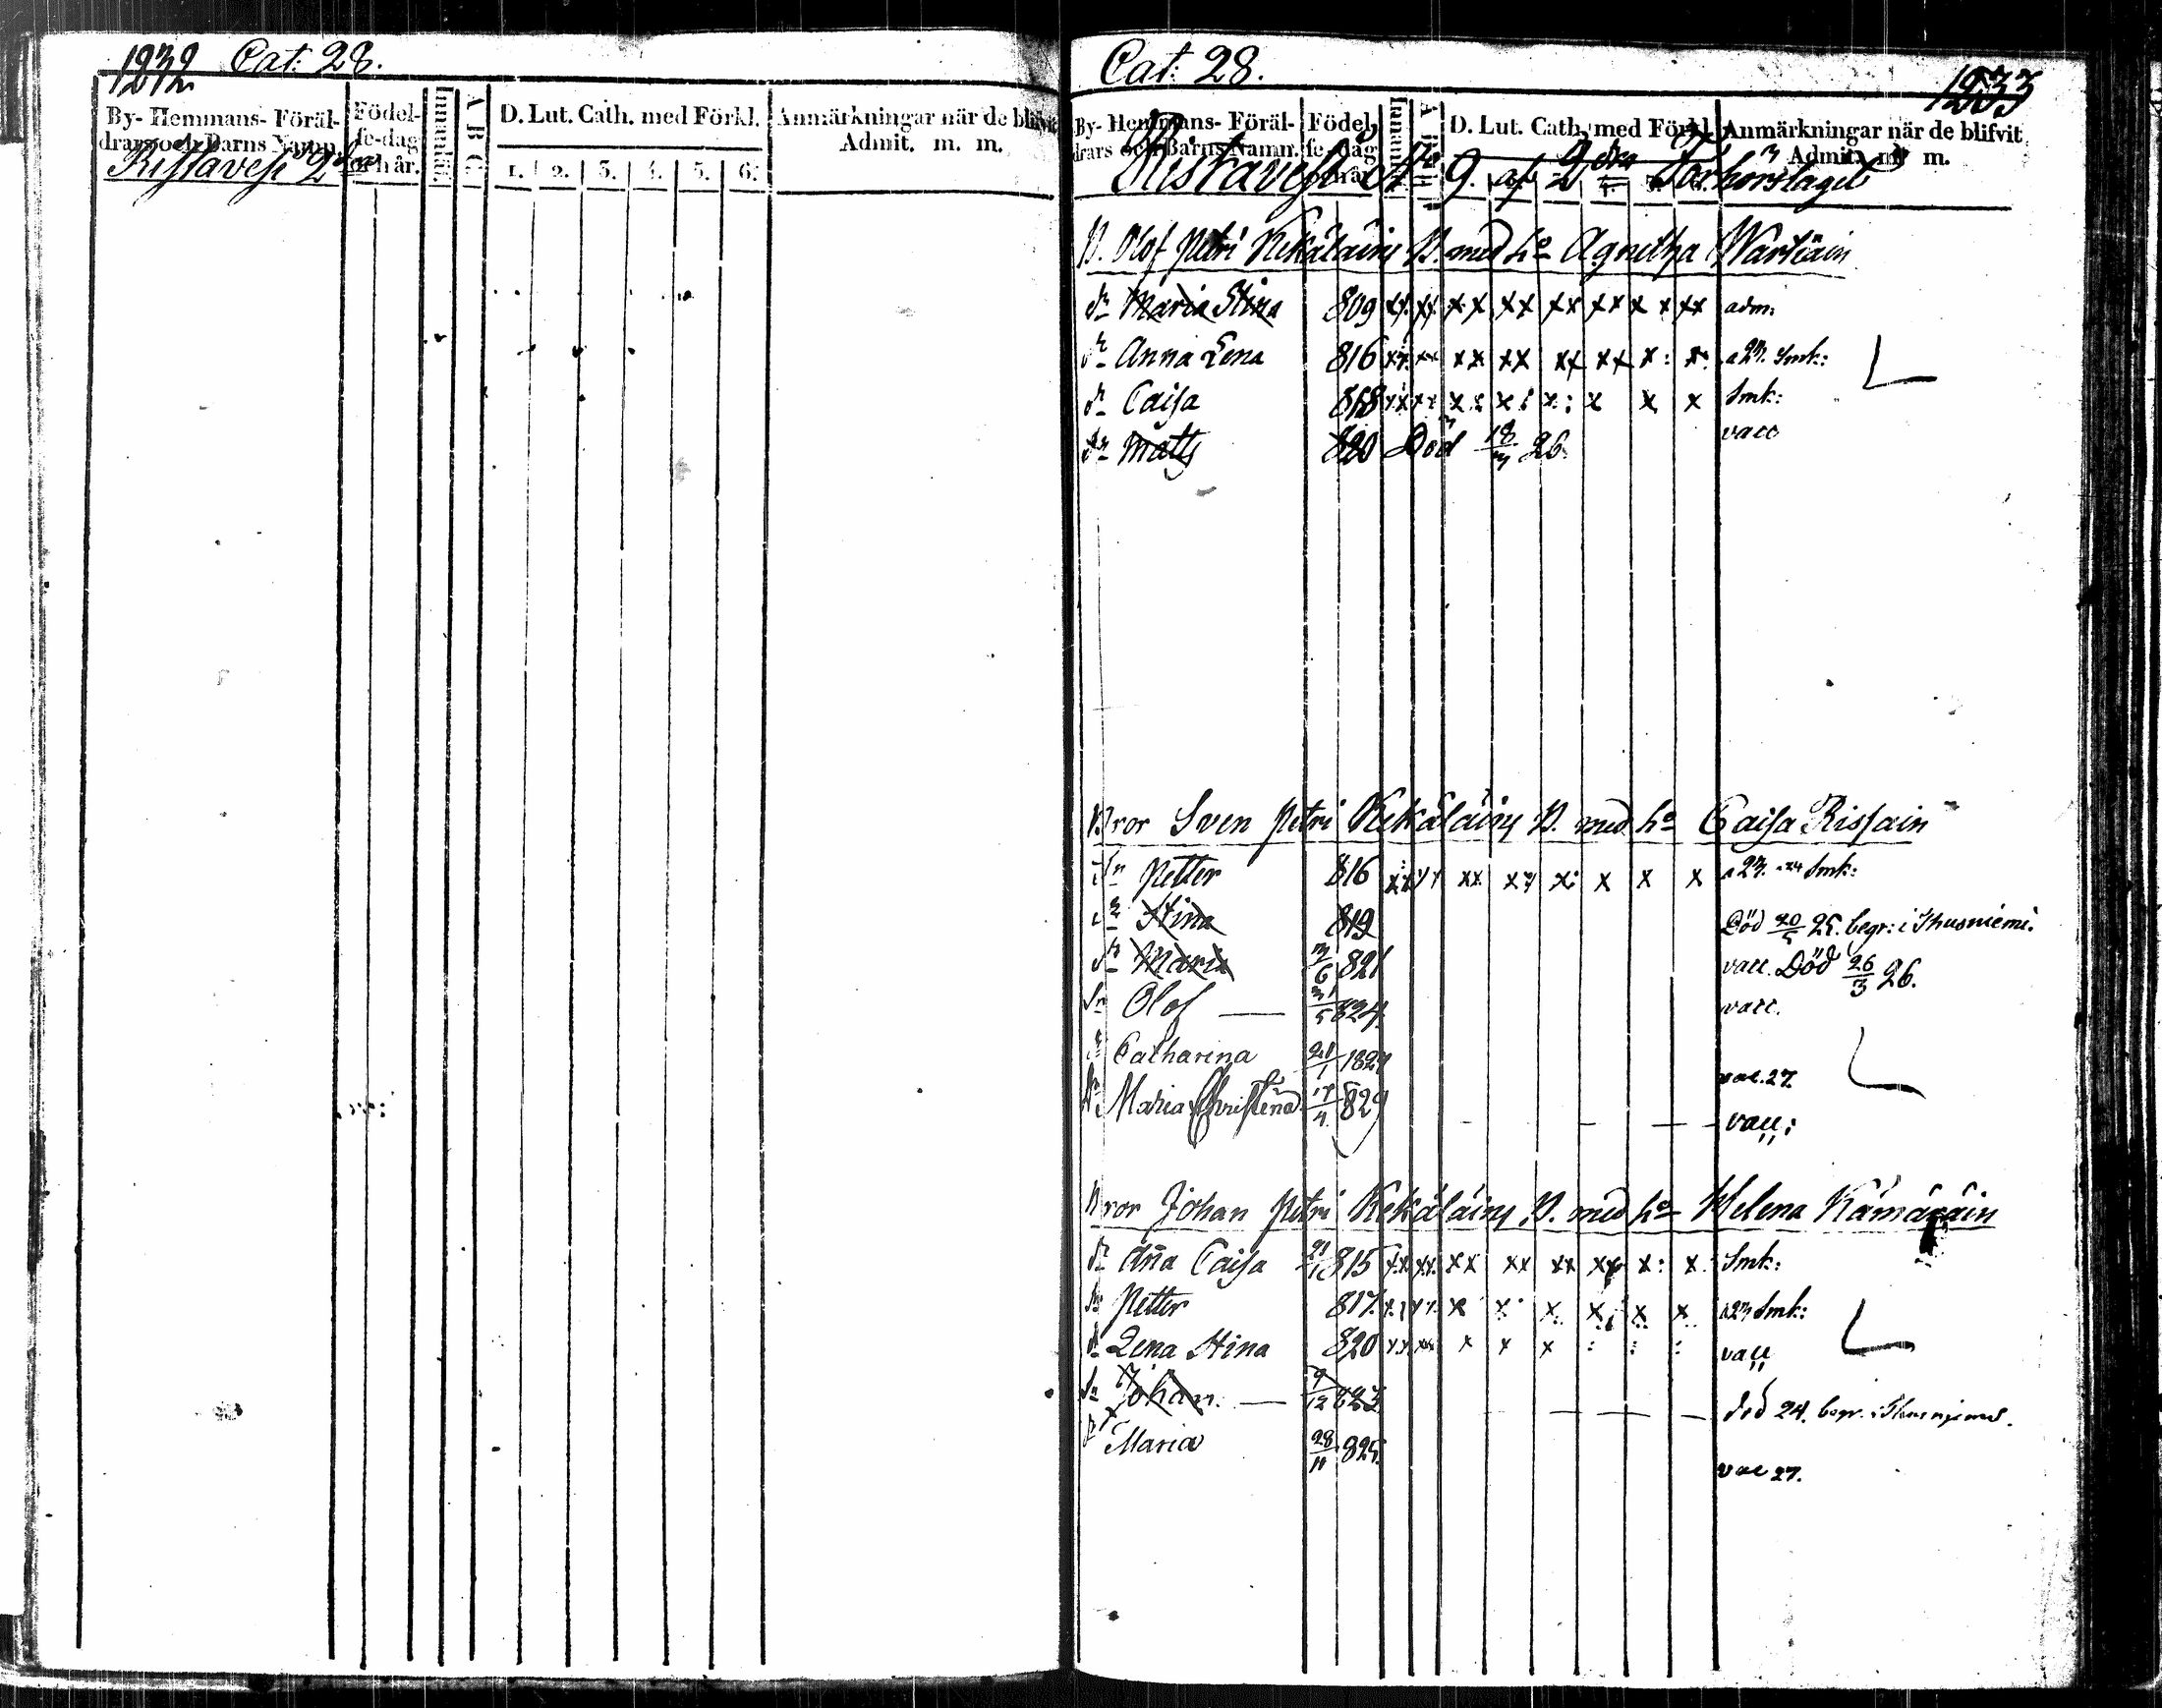 1232 Cat: 28.
By- Hemmans- Föräl-
drars och Barns Namn.
Födel-
se-dag
och år.
Innanläs
A B C
D. Lut. Cath. med Förkl.
1. 2. 3. 4. 5. 6.
Anmärkningar när de blifvit
Admit. m. m.
Rissavesi 2
Cat: 28. 1233
By- Hemmans- Föräl-
drars och Barns Namn.
Födel-
se-dag
och år
D. Lut. Cath. med Förkl.
Anmärkningar när de blifvit
Admit. m. m.
9 af 2dra Förhörslaget
B. Olof Petri Kekäläin B. med ho Agnetha Wartiain
dr Maria Stina 809 xx xx xx xx xx xx x x xx adm:
dr Anna Lena 816 xx xx xx xx xx xx x: x. a 23. Smk:
dr Caisa 818 xx xx x: x: x: x x x Smk:
Sn Matts 820 Död 18/3 26. vacc
Bror Sven Petri Kekäläin B. med ho Caisa Rissain
Sn Petter 816 xx xx xx xx x: x x x a 23. 24 Smk:
dr Stina 819 Död 20/5 25. begr: i Thusniemi.
dr Maria 3/6 821 vacc. Död 26/3 26.
Sn Olof — 31/5 824. vacc.
dr Catharina 21/1 1827 vac. 27
Dr Maria Christina 17/4 829 vacc:
Bror Johan Petri Kekäläin B. med ho Helena Kämäräin
dr Aña Caisa 21/1 815 xx xx xx xx xx xx x: x. Smk:
Sn Petter 817 x: x x. x x. x. x. x. x. a 23 Smk:
dr Lena Stina 820 xx xx x x x : : : vacc
Sn Johan — 9/12 823. död 24. begr.
dr Maria 28/11 825. vac 27.